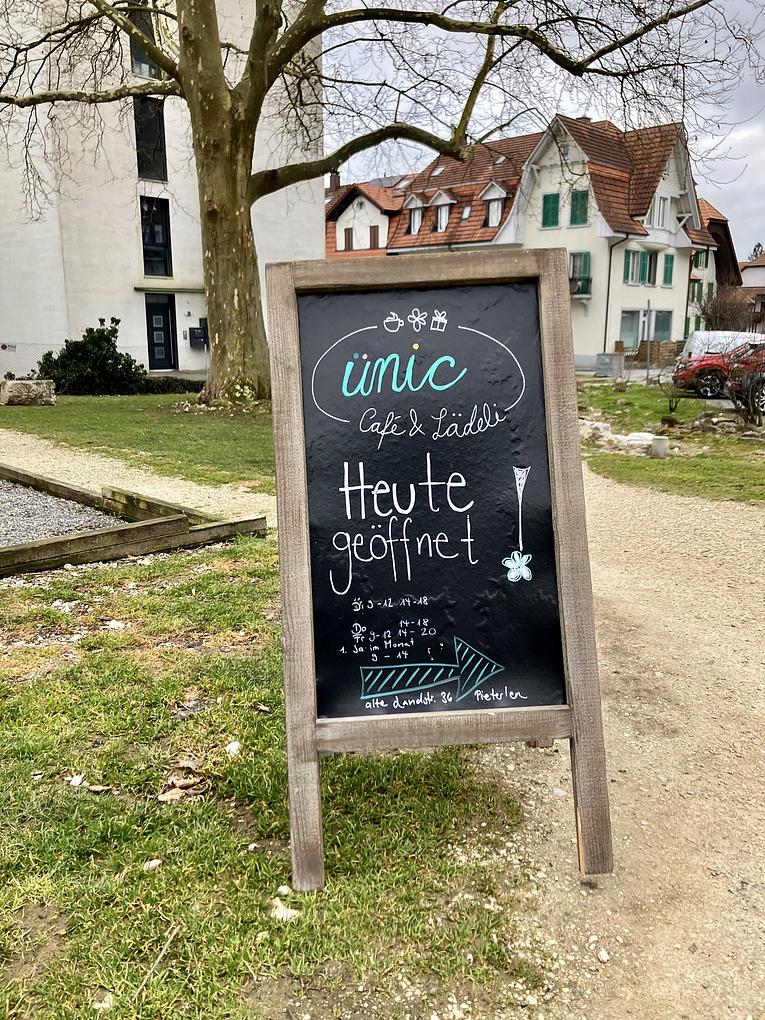 ünic
Café & Lädeli
Heute
geöffnet
Di 9-12 14-18
Do 14-18
Fr 9-12 14-20
1. Sa im Monat
9-14
alte Landstr. 36 Pieterlen